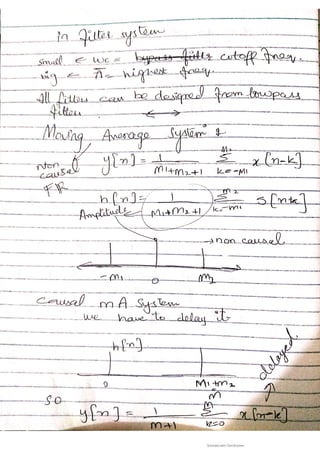 in filter system
small ← wc = bypass filter cutoff freq.
big ← π = highest freq.
All filters can be designed from lowpass
filter.
Moving Average System:
Non causal FIR
y[n] = 1/(M1+M2+1) Σ(k=-M1 to M2) x[n-k]
h[n] = 1/(M1+M2+1) Σ(k=-M1 to M2) S[n-k]
Amplitude
→ non causal
-M1 0 M2
Causal MA System
we have to delay it
h[n]
0 M1+M2
M
delayed.
so
y[n] = 1/(M+1) Σ(k=0 to M) x[n-k]